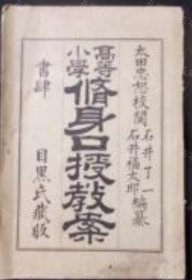 太田忠恕校閲 石井了一 石井福太郎 編纂
高等小學 脩身口授教案
書肆 目黒氏蔵版